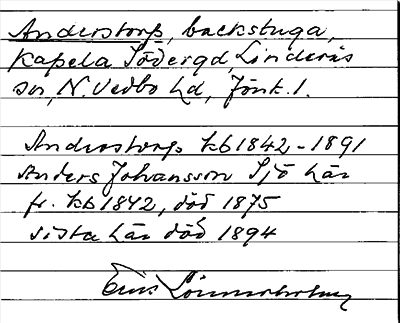 Anderstorp, backstuga,
Kapela Södergd, Linderås
sn, N. Vedbo hd, Jönk. l.
Anderstorp kb 1842-1891
Anders Johansson Sjö här
fr. kb 1842, död 1875
sista här död 1894